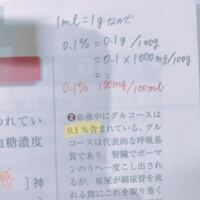 1ml=1g なので
0.1% = 0.1g/100g
= 0.1×1000mg/100g
=
0.1% 100mg/100ml
❷血液中にグルコースは
0.1%含まれている。グル
コースは代表的な呼吸基
質であり，腎臓でボーマ
ンのうへ一度こし出され
るが，原尿が細尿管を流
れる間にこれを取り巻く
れてい
血糖濃度
感】神